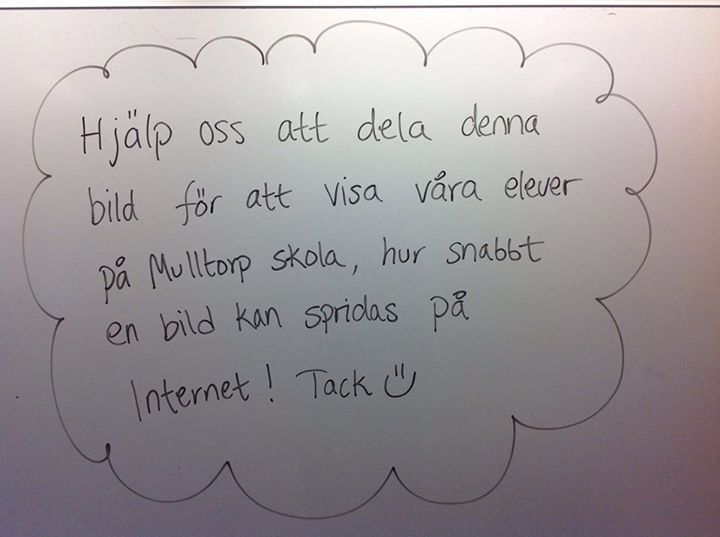 Hjälp oss att dela denna
bild för att visa våra elever
på Mulltorp skola, hur snabbt
en bild kan spridas på
Internet! Tack